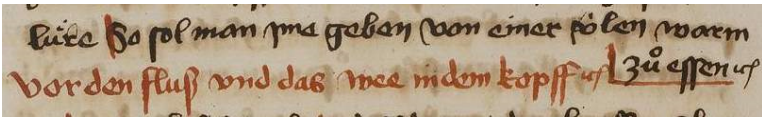 lúte So sol man jme geben von einer kolen warm
vor den fluß vnd das wee in dem kopff ⁊c zů essen ⁊c